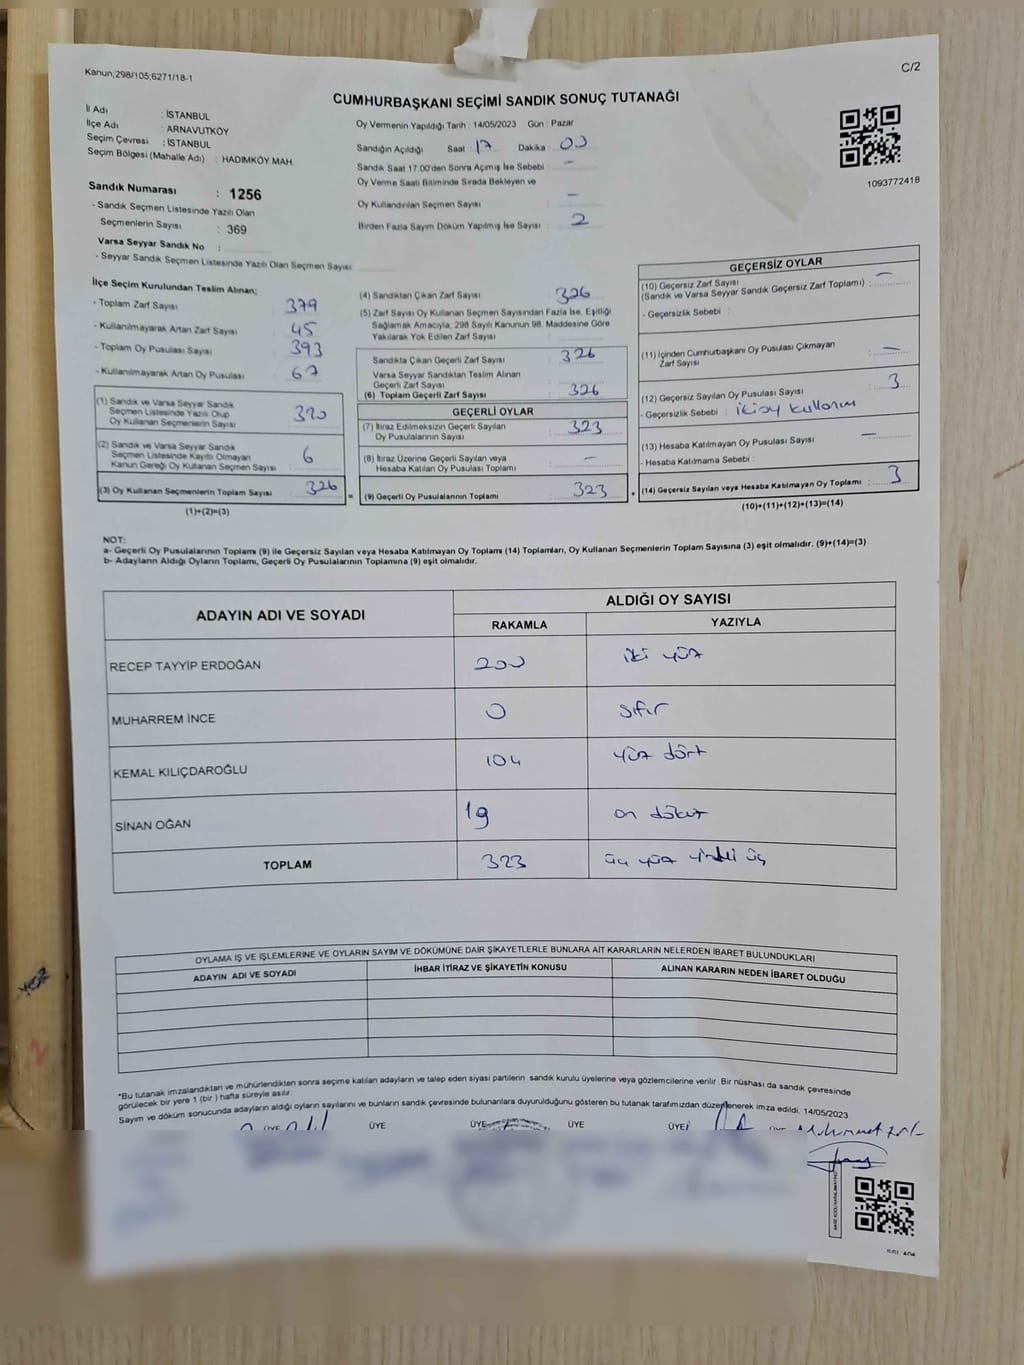 Kanun,298/105;6271/18-1
C/2
CUMHURBAŞKANI SEÇİMİ SANDIK SONUÇ TUTANAĞI
İl Adı : İSTANBUL
İlçe Adı : ARNAVUTKÖY
Seçim Çevresi : İSTANBUL
Seçim Bölgesi (Mahalle Adı) : HADIMKÖY MAH.
Sandık Numarası : 1256
- Sandık Seçmen Listesinde Yazılı Olan
Seçmenlerin Sayısı : 369
Varsa Seyyar Sandık No :
- Seyyar Sandık Seçmen Listesinde Yazılı Olan Seçmen Sayısı:
Oy Vermenin Yapıldığı Tarih : 14/05/2023 Gün : Pazar
Sandığın Açıldığı Saat : 17 Dakika : 00
Sandık Saat 17.00'den Sonra Açımış İse Sebebi : -
Oy Verme Saati Bitiminde Sırada Bekleyen ve
Oy Kullandırılan Seçmen Sayısı : -
Birden Fazla Sayım Döküm Yapılmış İse Sayısı : 2
1093772418
İlçe Seçim Kurulundan Teslim Alınan;
- Toplam Zarf Sayısı : 379
- Kullanılmayarak Artan Zarf Sayısı : 45
- Toplam Oy Pusulası Sayısı : 393
- Kullanılmayarak Artan Oy Pusulası : 67
(1) Sandık ve Varsa Seyyar Sandık
Seçmen Listesinde Yazılı Olup
Oy Kullanan Seçmenlerin Sayısı : 320
(2) Sandık ve Varsa Seyyar Sandık
Seçmen Listesinde Kayıtlı Olmayan
Kanun Gereği Oy Kullanan Seçmen Sayısı : 6
(3) Oy Kullanan Seçmenlerin Toplam Sayısı : 326
(1)+(2)=(3)
(4) Sandıktan Çıkan Zarf Sayısı : 326
(5) Zarf Sayısı Oy Kullanan Seçmen Sayısından Fazla İse, Eşitliği
Sağlamak Amacıyla, 298 Sayılı Kanunun 98. Maddesine Göre
Yakılarak Yok Edilen Zarf Sayısı :
Sandıkta Çıkan Geçerli Zarf Sayısı : 326
Varsa Seyyar Sandıktan Teslim Alınan
Geçerli Zarf Sayısı :
(6) Toplam Geçerli Zarf Sayısı : 326
GEÇERLİ OYLAR
(7) İtiraz Edilmeksizin Geçerli Sayılan
Oy Pusulalarının Sayısı : 323
(8) İtiraz Üzerine Geçerli Sayılan veya
Hesaba Katılan Oy Pusulası Toplamı : -
(9) Geçerli Oy Pusulalarının Toplamı : 323
GEÇERSİZ OYLAR
(10) Geçersiz Zarf Sayısı
(Sandık ve Varsa Seyyar Sandık Geçersiz Zarf Toplamı) : -
- Geçersizlik Sebebi :
(11) İçinden Cumhurbaşkanı Oy Pusulası Çıkmayan
Zarf Sayısı : -
(12) Geçersiz Sayılan Oy Pusulası Sayısı : 3
- Geçersizlik Sebebi : iki oy kullanım
(13) Hesaba Katılmayan Oy Pusulası Sayısı : -
- Hesaba Katılmama Sebebi :
(14) Geçersiz Sayılan veya Hesaba Katılmayan Oy Toplamı : 3
(10)+(11)+(12)+(13)=(14)
NOT:
a- Geçerli Oy Pusulalarının Toplamı (9) ile Geçersiz Sayılan veya Hesaba Katılmayan Oy Toplamı (14) Toplamları, Oy Kullanan Seçmenlerin Toplam Sayısına (3) eşit olmalıdır. (9)+(14)=(3)
b- Adayların Aldığı Oyların Toplamı, Geçerli Oy Pusulalarının Toplamına (9) eşit olmalıdır.
ADAYIN ADI VE SOYADI ALDIĞI OY SAYISI
RAKAMLA YAZIYLA
RECEP TAYYİP ERDOĞAN 200 iki yüz
MUHARREM İNCE 0 sıfır
KEMAL KILIÇDAROĞLU 104 yüz dört
SİNAN OĞAN 19 on dokuz
TOPLAM 323 üç yüz yirmi üç
OYLAMA İŞ VE İŞLEMLERİNE VE OYLARIN SAYIM VE DÖKÜMÜNE DAİR ŞİKAYETLERLE BUNLARA AİT KARARLARIN NELERDEN İBARET BULUNDUKLARI
ADAYIN ADI VE SOYADI İHBAR İTİRAZ VE ŞİKAYETİN KONUSU ALINAN KARARIN NEDEN İBARET OLDUĞU
*Bu tutanak imzalandıktan ve mühürlendikten sonra seçime katılan adayların ve talep eden siyasi partilerin sandık kurulu üyelerine veya gözlemcilerine verilir. Bir nüshası da sandık çevresinde
görülecek bir yere 1 (bir) hafta süreyle asılır.
Sayım ve döküm sonucunda adayların aldığı oyların sayılarını ve bunların sandık çevresinde bulunanlara duyurulduğunu gösteren bu tutanak tarafımızdan düzenlenerek imza edildi. 14/05/2023
ÜYE ÜYE ÜYE ÜYE ÜYE